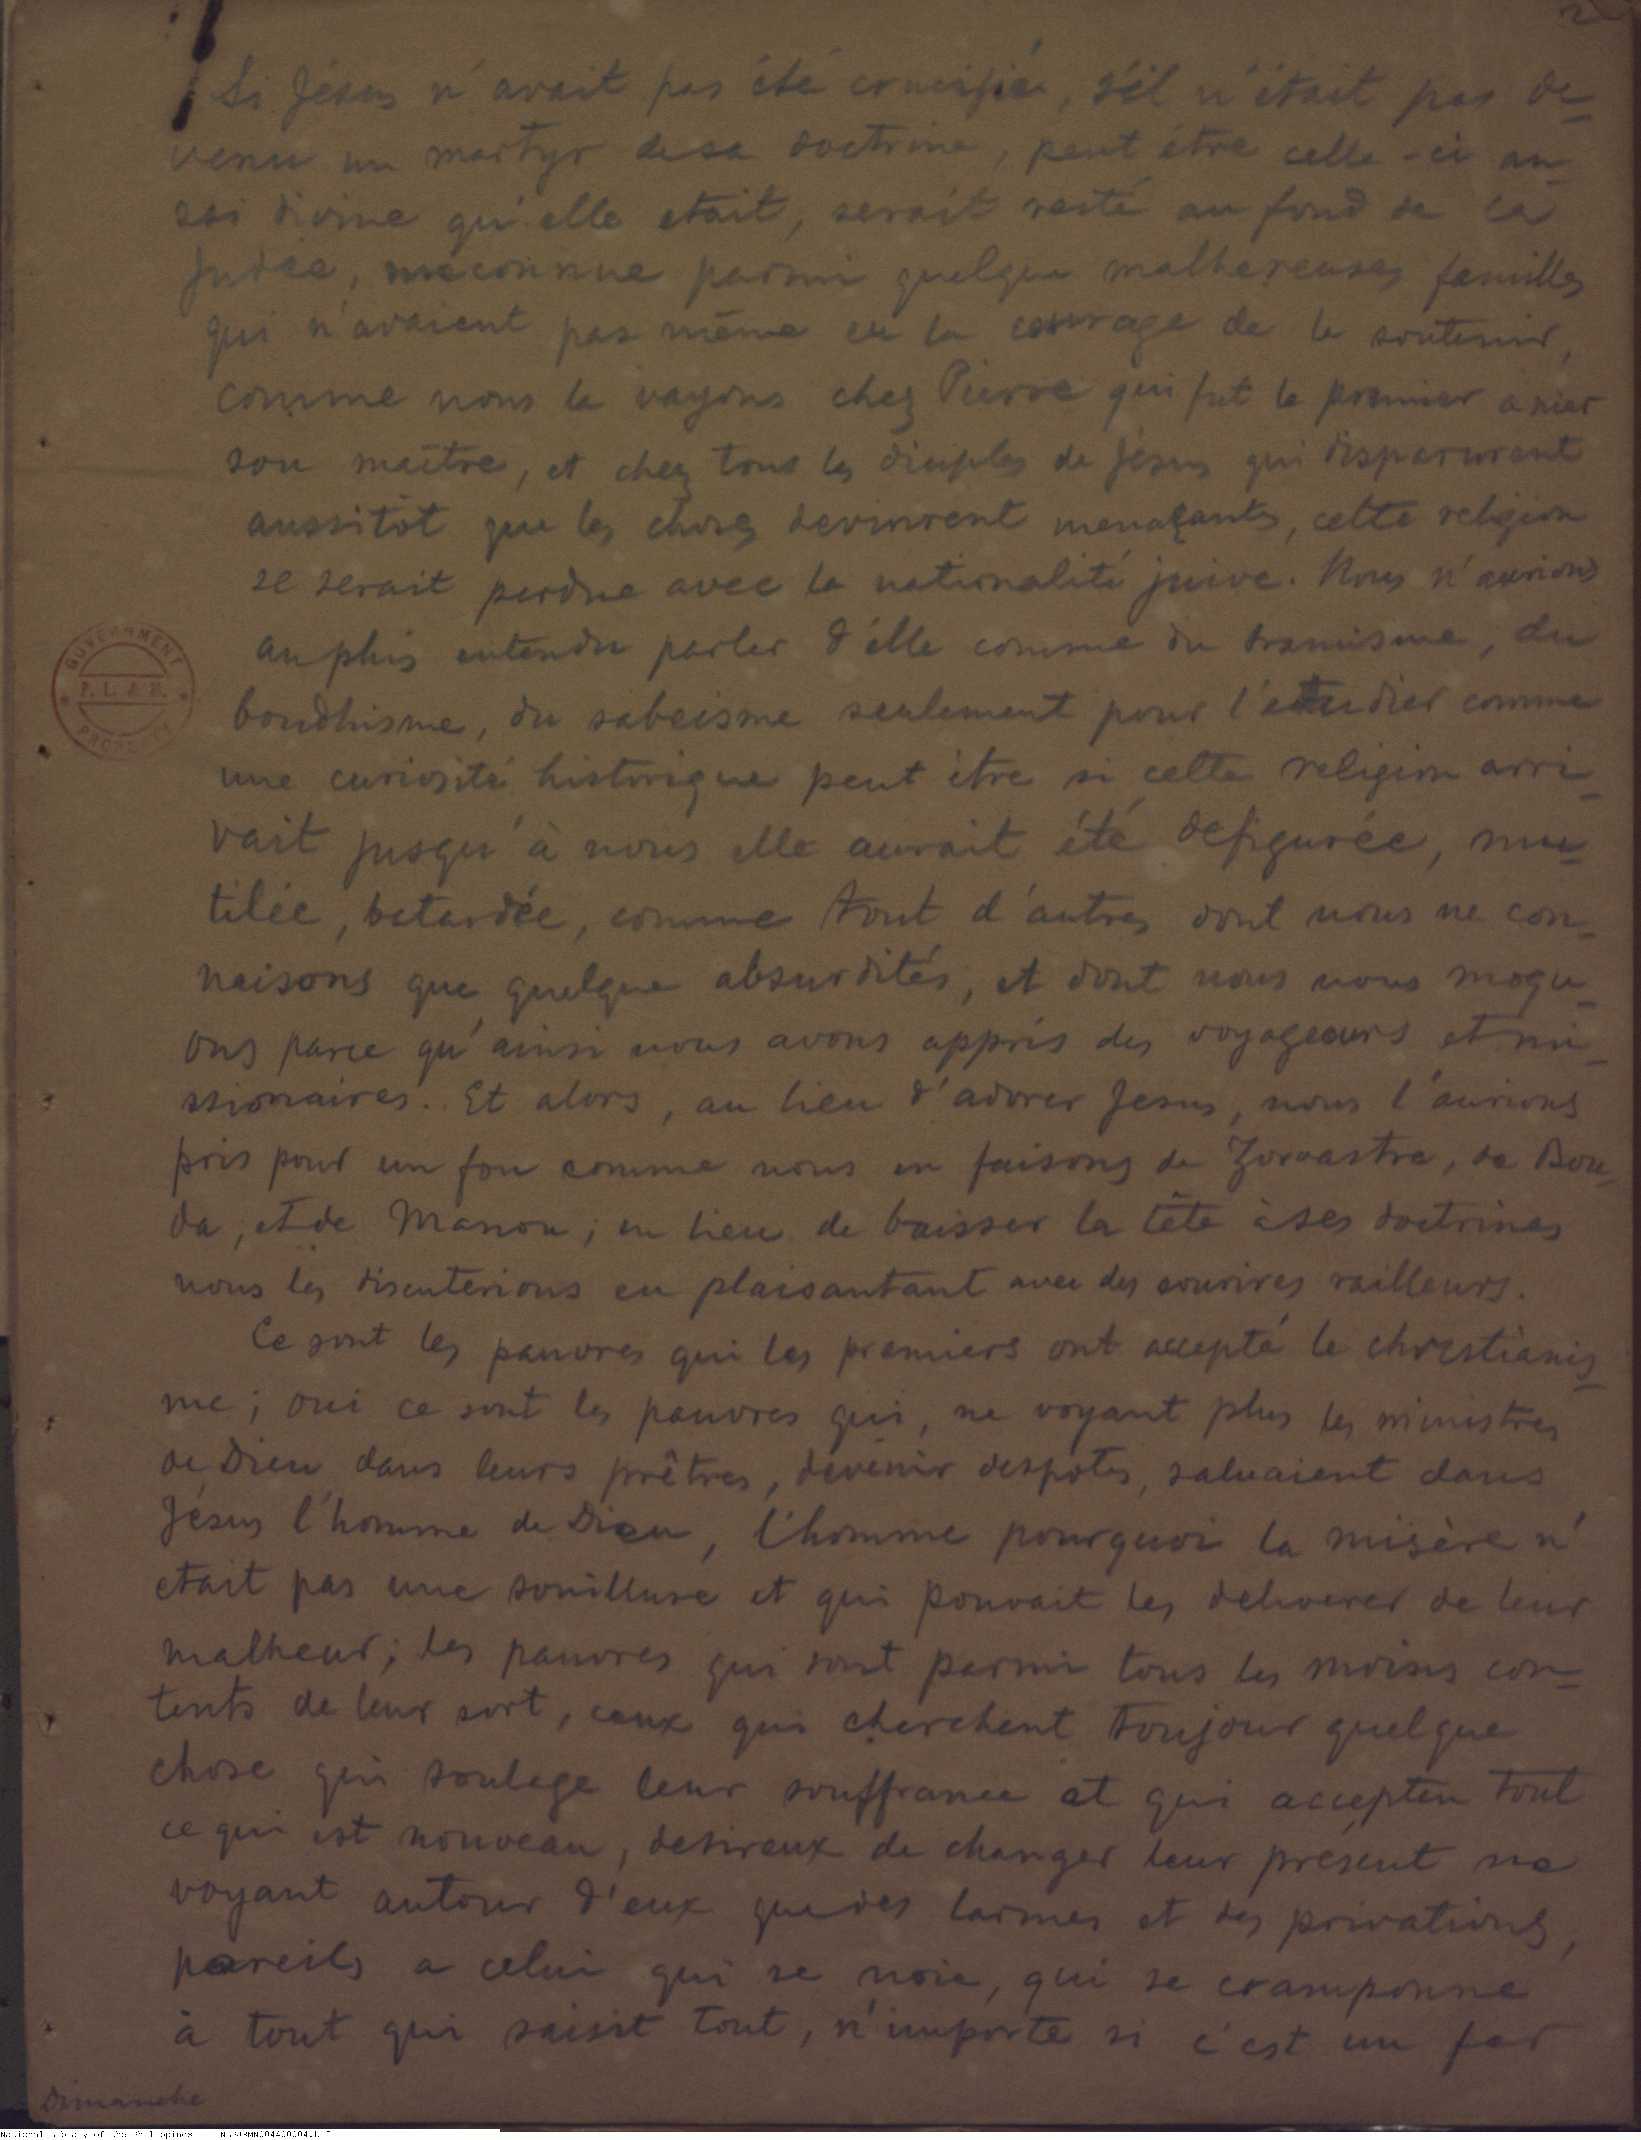 2
Si Jésus n'avait pas été crucifié, s'il n'était pas de-
venu un martyr de sa doctrine, peut être celle-ci au-
ssi divine qu'elle etait, serait resté au fond de la
Judée, meconnue parmi quelque malhereuses familles
qui n'avaient pas même eu la courage de le soutenir,
comme nous le vayons chez Pierre qui fut le premier a nier
son maître, et chez tous les diciples de Jésus qui disparurent
aussitôt que les choses devinrent menaçants, cette religion
se serait perdue avec la nationalité juive. Nous n'aurions
au plus entendu parler d'elle comme du bramisme, du
boudhisme, du sabeisme seulement pour l'etudier comme
une curiosité historique peut être si cette religion arri-
vait jusqu'à nous elle aurait été defigurée, mu-
tilée, batardée, comme tout d'autres dont nous ne con-
naisons que quelque absurdités, et dont nous nous moqu-
ons parce qu'ainsi nous avons appris des voyageurs et mi-
ssionaires. Et alors, au lieu d'adorer Jesus, nous l'aurions
pris pour un fou comme nous en faisons de Zoroastre, de Bou-
da, et de Manou; en lieu de baisser la tête à ses doctrines
nous les discuterions en plaisantant avec des sourires railleurs.
Ce sont les pauvres qui les premiers ont accepté le christianis-
me; oui ce sont les pauvres qui, ne voyant plus les ministres
de Dieu dans leurs prêtres, devenir despotes, saluaient dans
Jésus l'homme de Dieu, l'homme pourquoi la misère n'
etait pas une souillure et qui pouvait les deliverer de leur
malheur; les pauvres qui sont parmi tous les moins con-
tents de leur sort, ceux qui cherchent toujour quelque
chose qui soulage leur souffrance et qui accepten tout
ce qui est nouveau, desireux de changer leur présent ne
voyant autour d'eux que des larmes et des privations,
pareils a celui qui se noie, qui se cramponne
à tout qui saisit tout, n'importe si c'est un fer
Dimanche
GOVERNMENT
P. L. & M.
PROPERTY
National Library of the Philippines